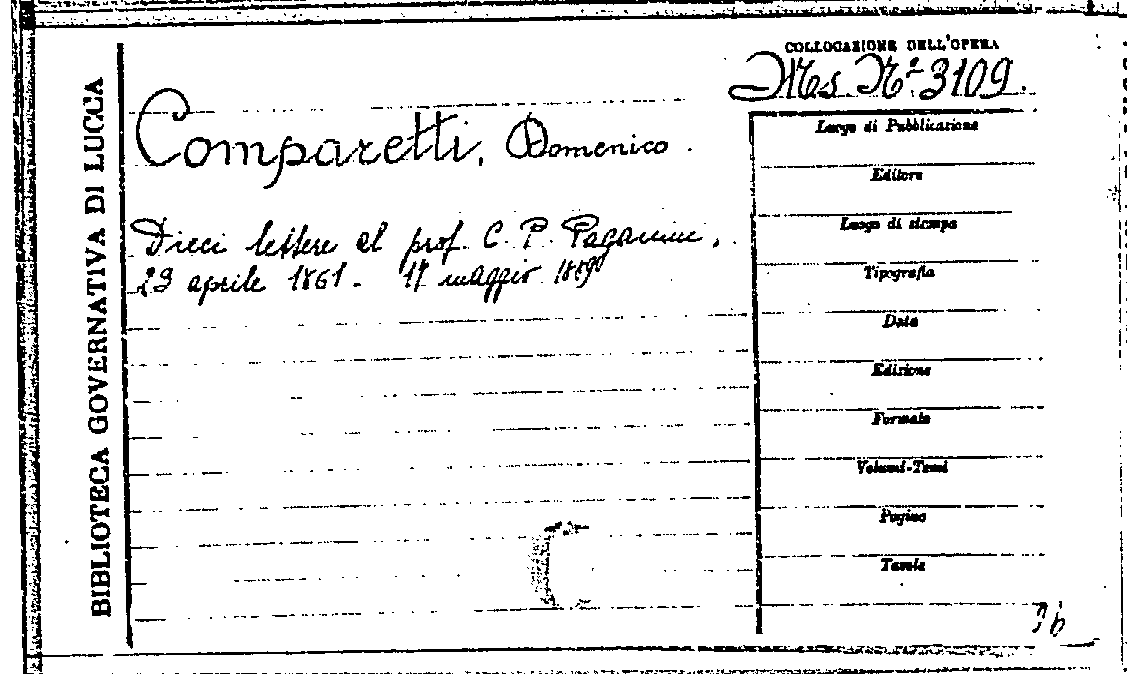 BIBLIOTECA GOVERNATIVA DI LUCCA
COLLOCAZIONE DELL'OPERA
Ms. Nº 3109.
Comparetti, Domenico.
Dieci lettere al prof. C. P. Paganini,
23 aprile 1861 - 17 maggio 1869
Luogo di Pubblicazione
Editore
Luogo di stampa
Tipografia
Data
Edizione
Formato
Volumi-Tomi
Pagine
Tavole